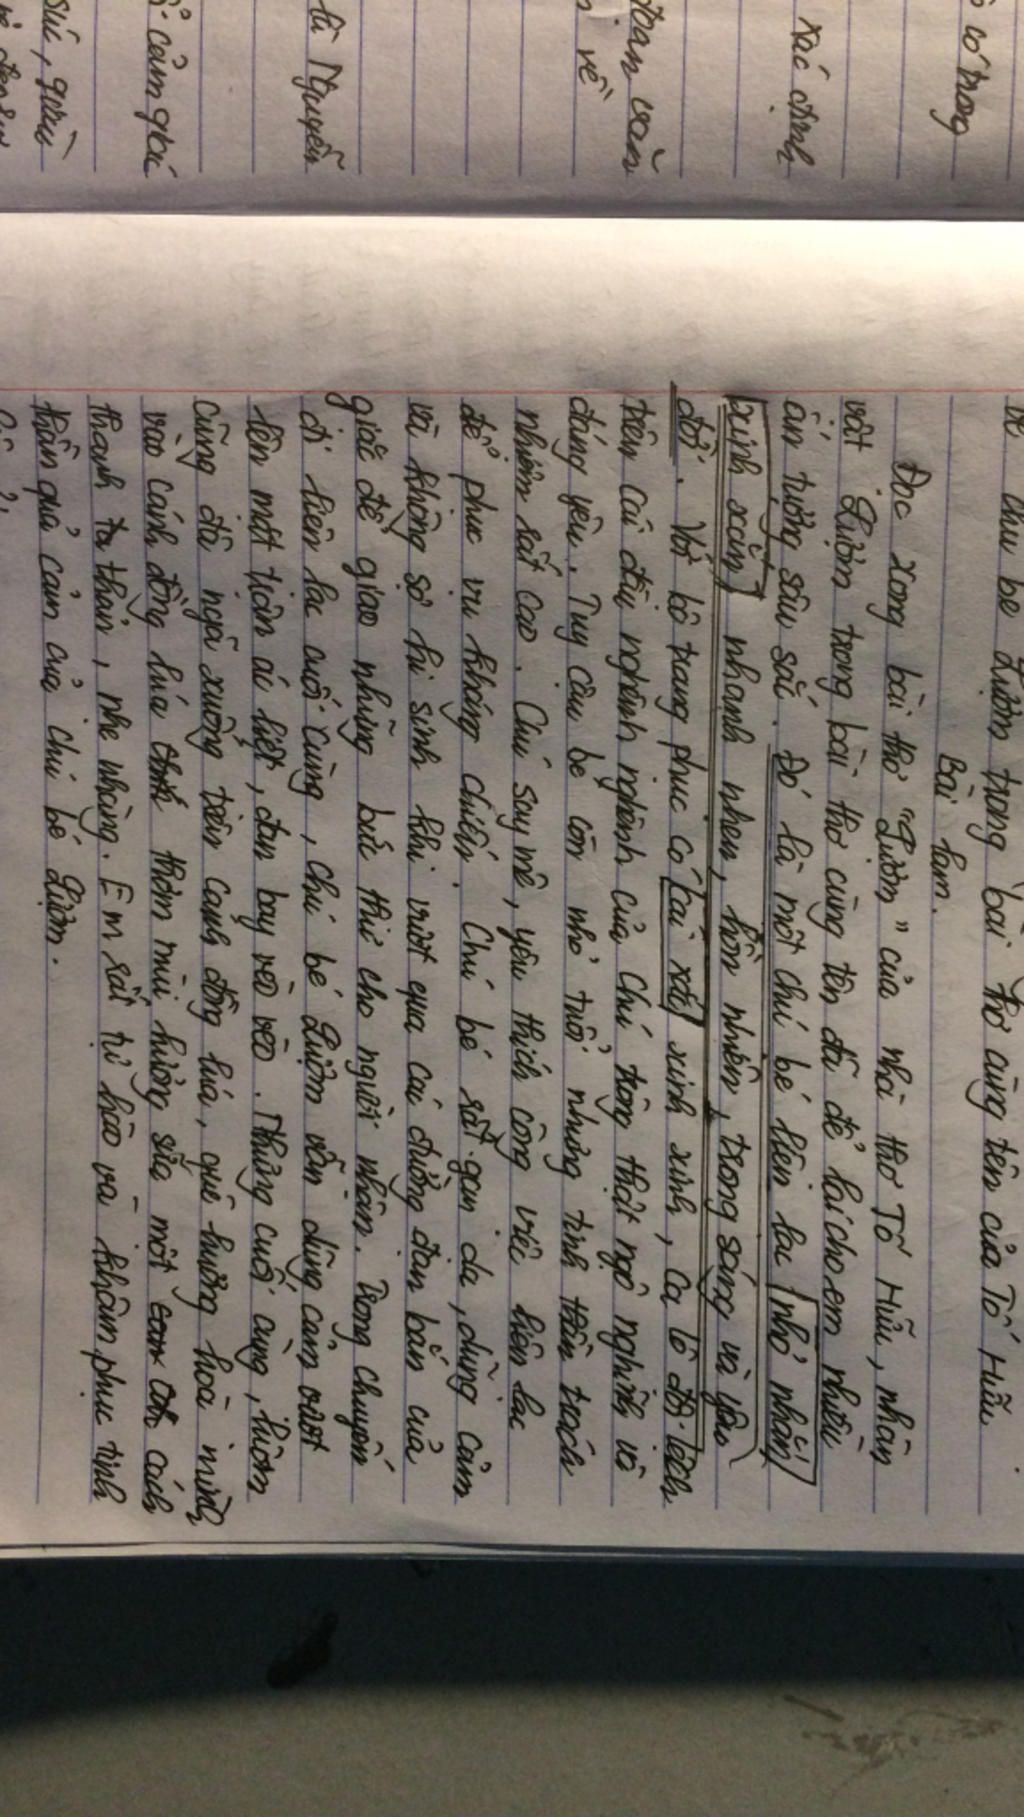 bé Lượm trong bài thơ cùng tên của Tố Hữu
Bài làm.
Đọc xong bài thơ "Lượm" của nhà thơ Tố Hữu, nhân
vật Lượm trong bài thơ cùng tên đã để lại cho em nhiều
ấn tượng sâu sắc. Đó là một chú bé liên lạc nhỏ nhắn
xinh xắn, nhanh nhẹn, hồn nhiên, trong sáng và yêu
đời. Với bộ trang phục có cái xắc xinh xinh, ca lô đội lệch
trên cái đầu nghênh nghênh của chú trông thật ngộ nghĩnh và
đáng yêu. Tuy cậu bé còn nhỏ tuổi nhưng tinh thần trách
nhiệm rất cao. Chú say mê, yêu thích công việc liên lạc
để phục vụ kháng chiến. Chú bé rất gan dạ, dũng cảm
và không sợ hi sinh khi vượt qua cái đường đạn bắn của
giặc để giao những bức thư cho người nhận. Trong chuyến
đi liên lạc cuối cùng, chú bé Lượm vẫn dũng cảm vượt
lên mặt trận ác liệt, đạn bay vèo vèo. Nhưng cuối cùng, Lượm
cũng đã ngã xuống trên cánh đồng lúa, quê hương hoà mình
vào cánh đồng lúa thơm mùi hương sữa một cách
thanh thản, nhẹ nhàng. Em rất tự hào và khâm phục tinh
thần quả cảm của chú bé Lượm.
có trong
xác định
đoạn văn
về
là Nguyễn
cảm giác